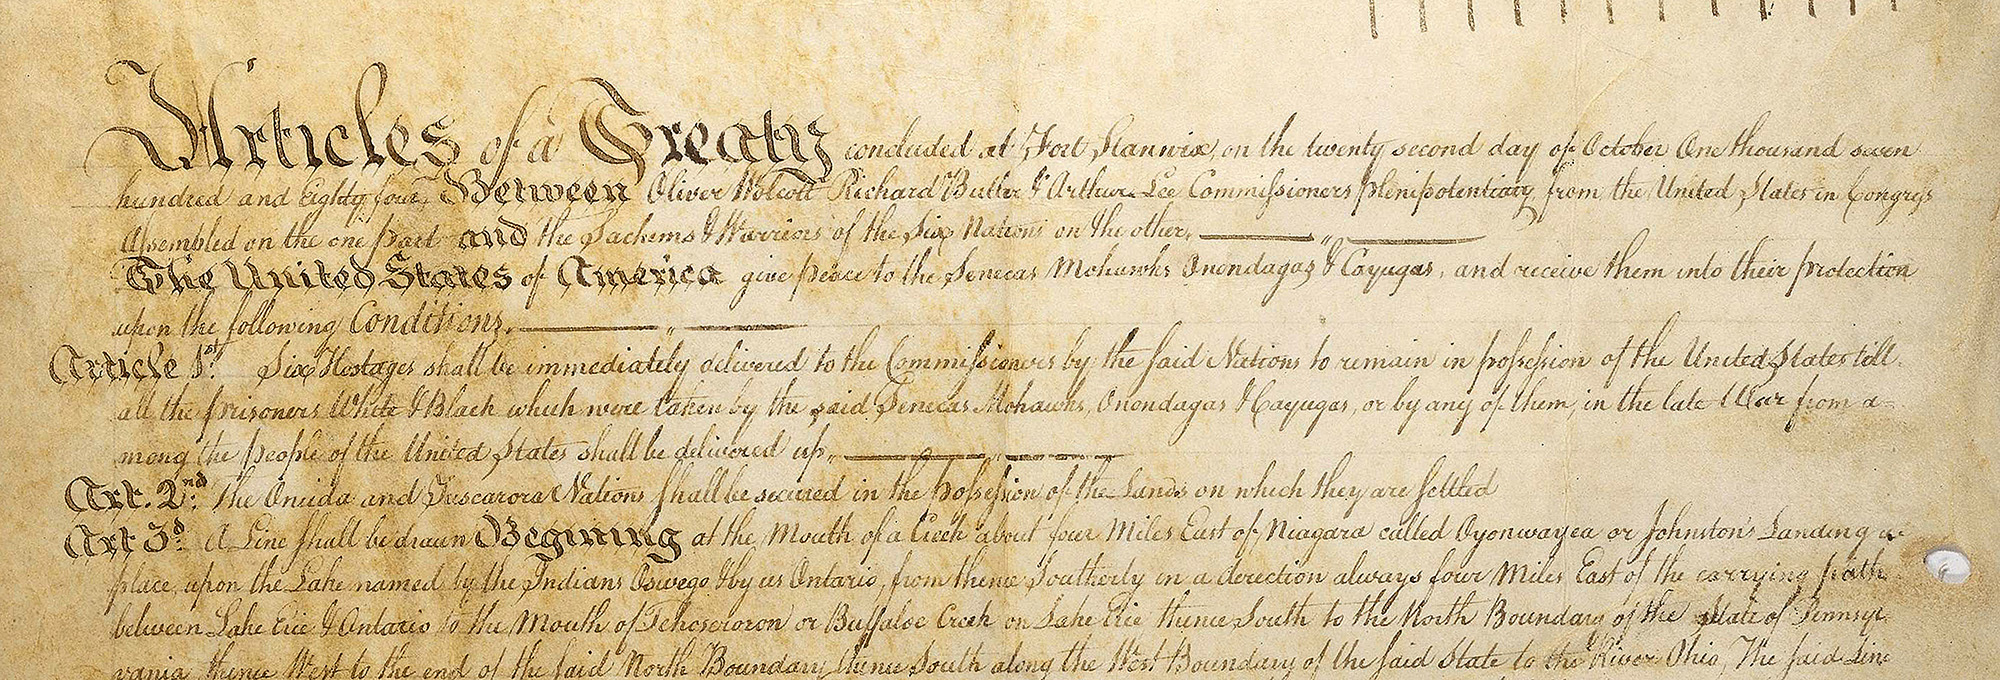 Articles of a Treaty concluded at Fort Stanwix, on the twenty second day of October One thousand seven
hundred and Eighty four, Between Oliver Wolcott Richard Butler & Arthur Lee Commissioners plenipotentiary from the United States in Congress
Assembled on the one part and the Sachems & Warriors of the Six Nations on the other,
The United States of America give peace to the Senecas Mohawks Onondagas & Cayugas, and receive them into their protection
upon the following Conditions,
Article 1st. Six Hostages shall be immediately delivered to the Commissioners by the said Nations to remain in possession of the United States till
all the prisoners White & Black which were taken by the said Senecas Mohawks, Onondagas & Cayugas, or by any of them, in the late War from a-
mong the people of the United States shall be delivered up,
Art. 2nd: The Oneida and Tuscarora Nations shall be secured in the Possession of the Lands on which they are settled
Art 3d: A Line shall be drawn Begining at the Mouth of a Creek about four Miles East of Niagara called Oyonwayea or Johnston's Landing a-
place, upon the Lake named by the Indians Oswego & by us Ontario, from thence Southerly in a direction always four Miles East of the carrying path
between Lake Erie & Ontario to the Mouth of Tehoseroron or Buffaloe Creek on Lake Erie thence South to the North Boundary of the State of Pennsyl
vania thence West to the end of the said North Boundary thence South along the West Boundary of the said State to the River Ohio, The said Line